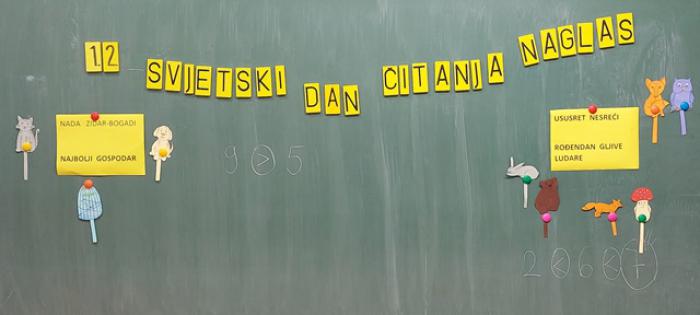 1.2. SVJETSKI DAN ČITANJA NAGLAS
NADA ZIDAR-BOGADI
NAJBOLJI GOSPODAR
9 > 5
USUSRET NESREĆI
ROĐENDAN GLJIVE
LUDARE
2 < 6 < 7